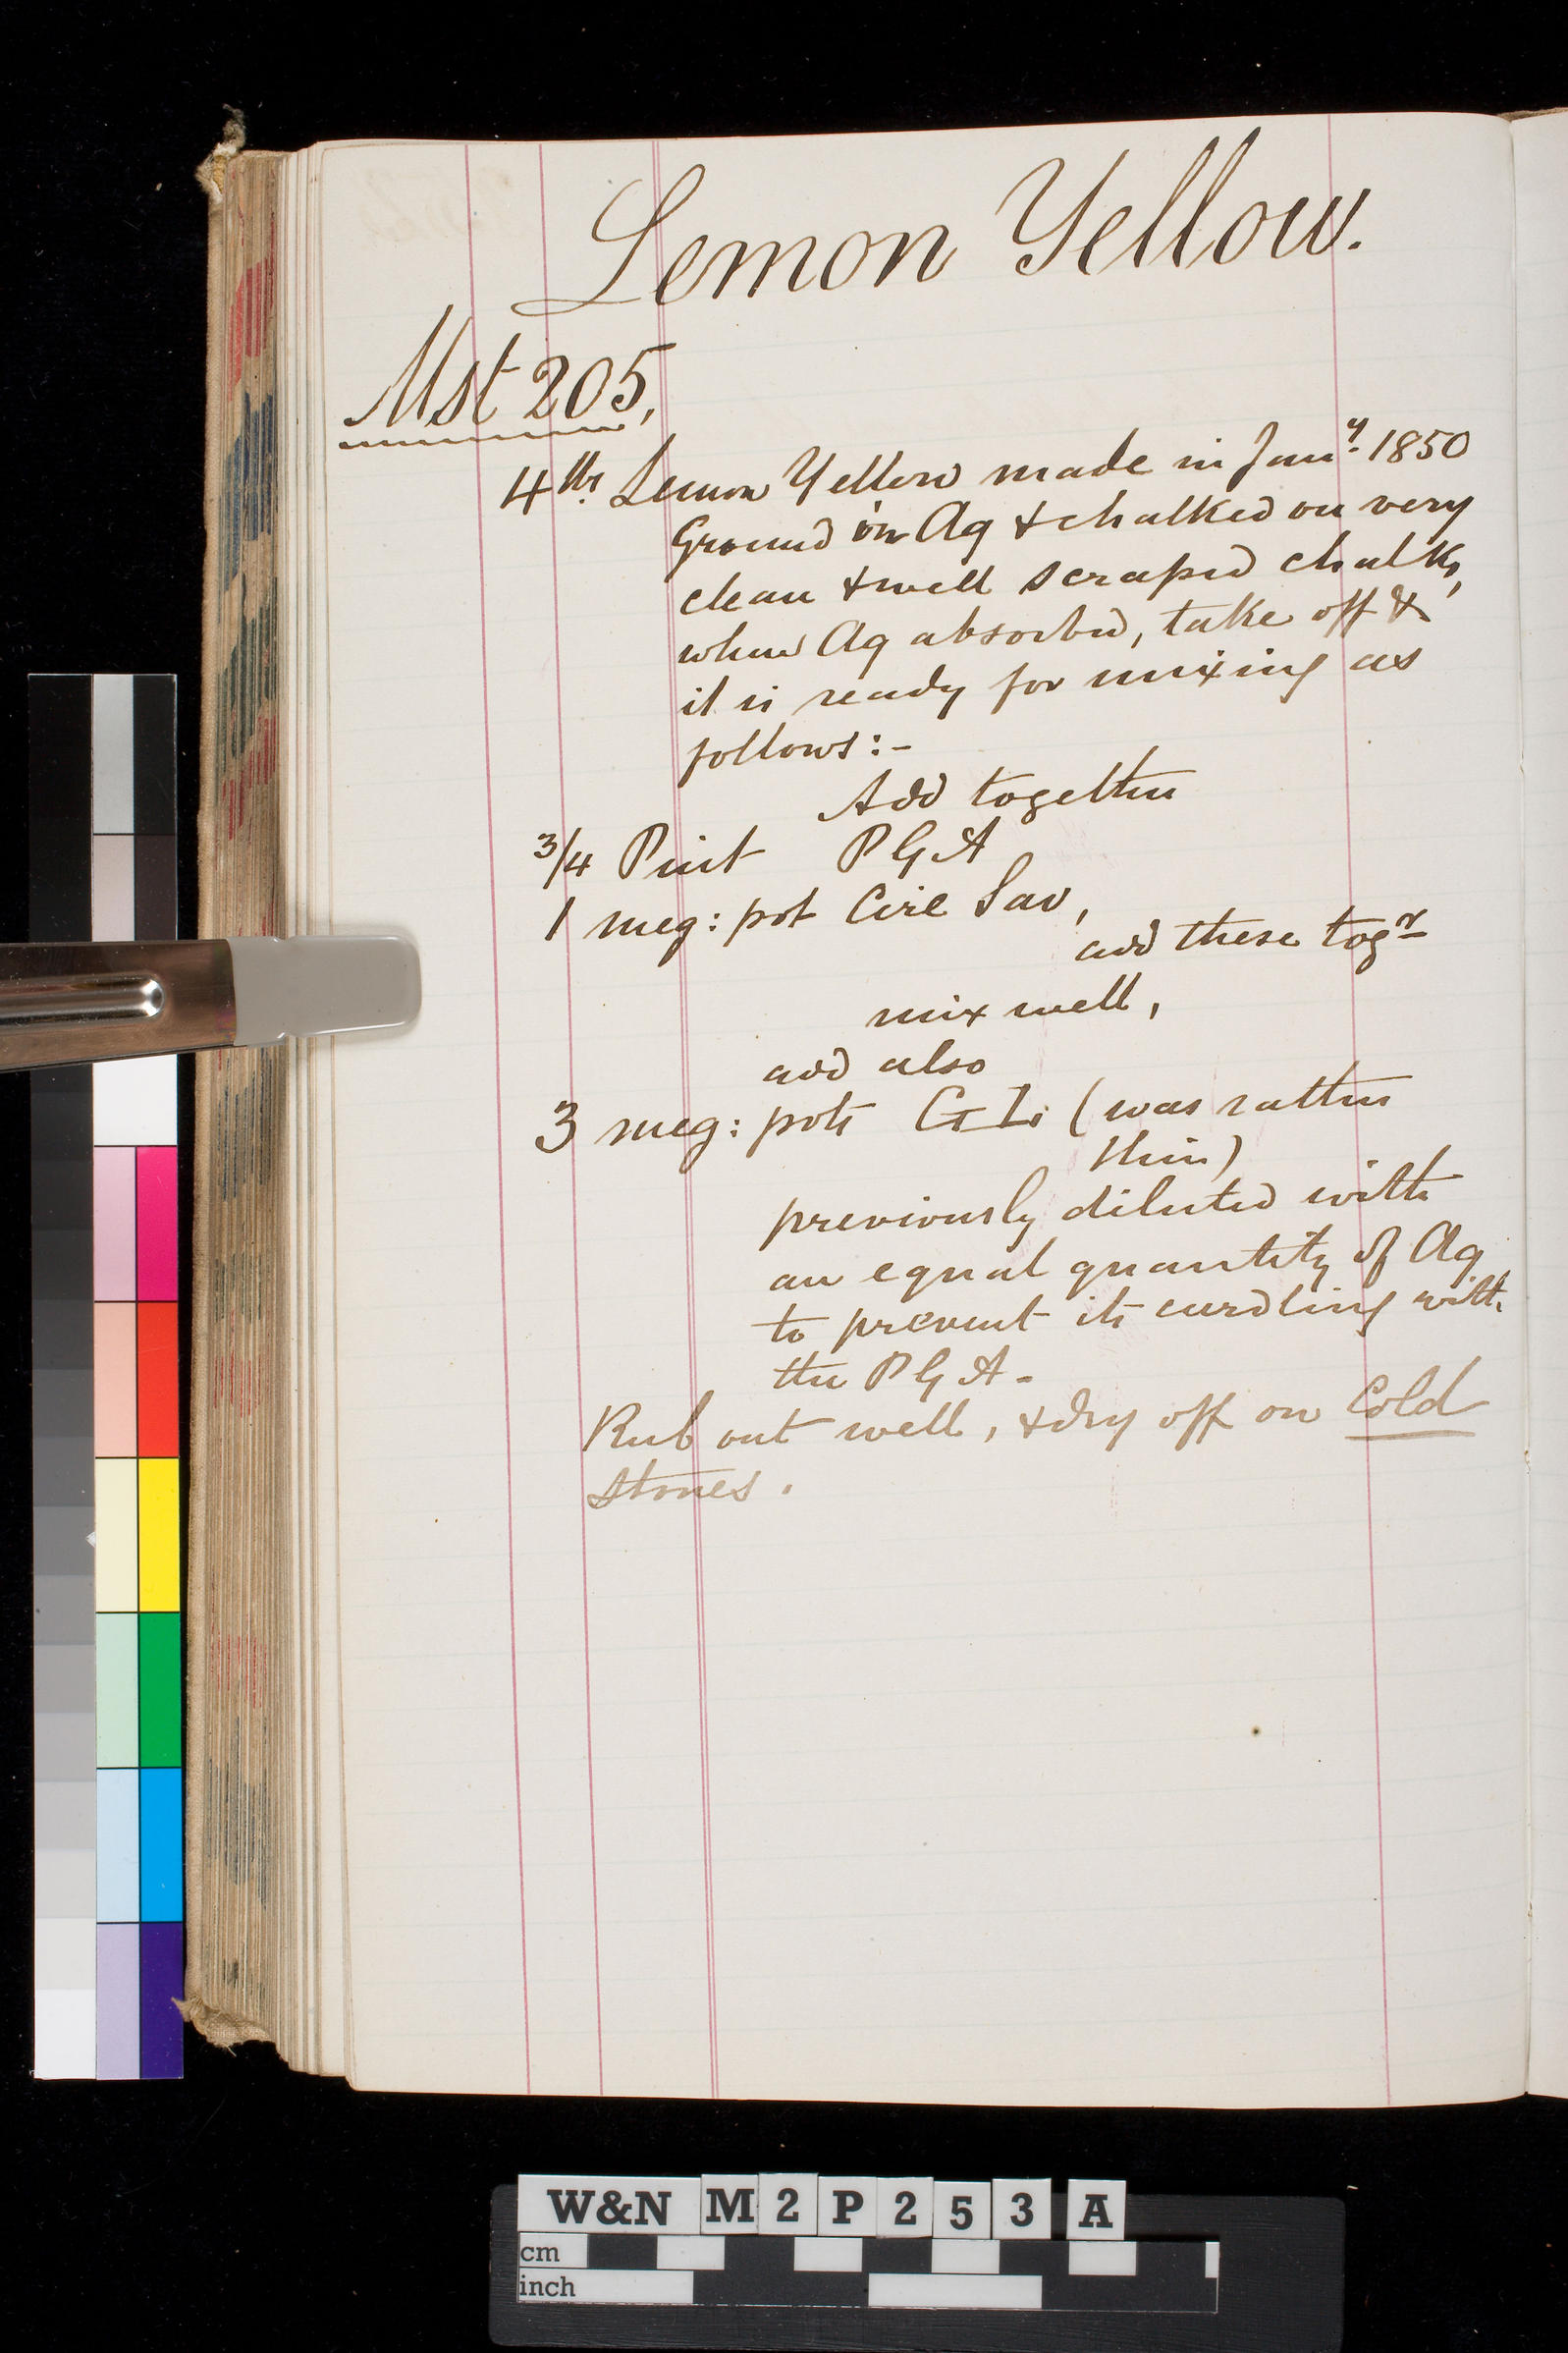 Lemon Yellow.
Mst 205,
4 lbs Lemon Yellow made in Jany. 1850
Ground in Aq & chalked on very
clean & well scraped chalk,
when Aq absorbed, take off &
it is ready for mixing as
follows:-
Add together
3/4 Pint P G A
1 meg: pot Cire Sav,
add these togr
mix well,
add also
3 meg: pots G L (was rather
thin)
previously diluted with
an equal quantity of Aq
to prevent its curdling with
the P G A -
Rub out well, & dry off on Cold
stones.
W&N M 2 P 2 5 3 A
cm
inch